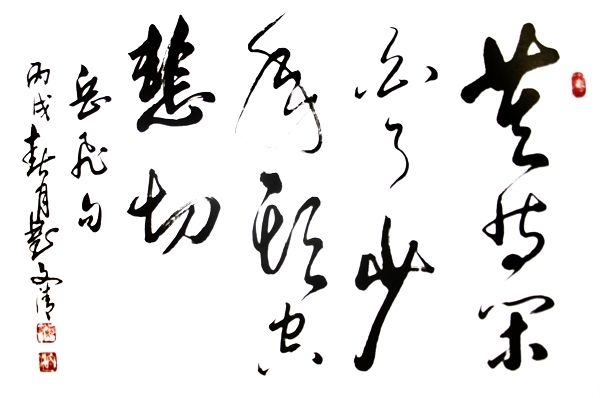 莫等闲
白了少
年頭空
悲切
岳飛句
丙戌春月文清